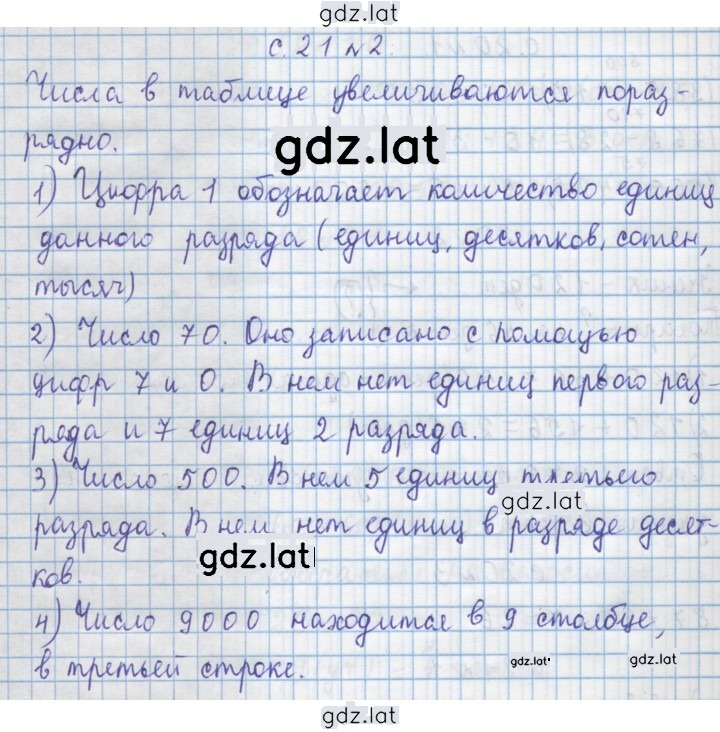 gdz.lat
с. 21 № 2.
Числа в таблице увеличиваются пораз-
рядно.
gdz.lat
1) Цифра 1 обозначает количество единиц
данного разряда (единиц, десятков, сотен,
тысяч)
2) Число 70. Оно записано с помощью
цифр 7 и 0. В нем нет единиц первого раз-
ряда и 7 единиц 2 разряда.
3) Число 500. В нем 5 единиц третьего
gdz.lat
разряда. В нем нет единиц в разряде десят-
gdz.lat
ков.
4) Число 9000 находится в 9 столбце,
gdz.lat
в третьей строке.
gdz.lat
gdz.lat